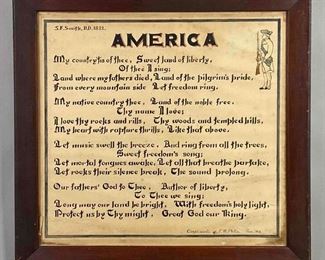 S.F. Smith, D.D. 1832.
AMERICA
My country tis of thee, Sweet land of liberty,
Of thee I sing;
Land where my fathers died, Land of the pilgrim's pride,
From every mountain side Let freedom ring.
My native country thee, Land of the noble free,
Thy name I love;
I love thy rocks and rills, Thy woods and templed hills,
My heart with rapture thrills, Like that above.
Let music swell the breeze, And ring from all the trees,
Sweet freedom's song;
Let mortal tongues awake, Let all that breathe partake,
Let rocks their silence break, The sound prolong.
Our fathers' God to Thee, Author of liberty,
To Thee we sing;
Long may our land be bright, With freedom's holy light,
Protect us by Thy might, Great God our King.